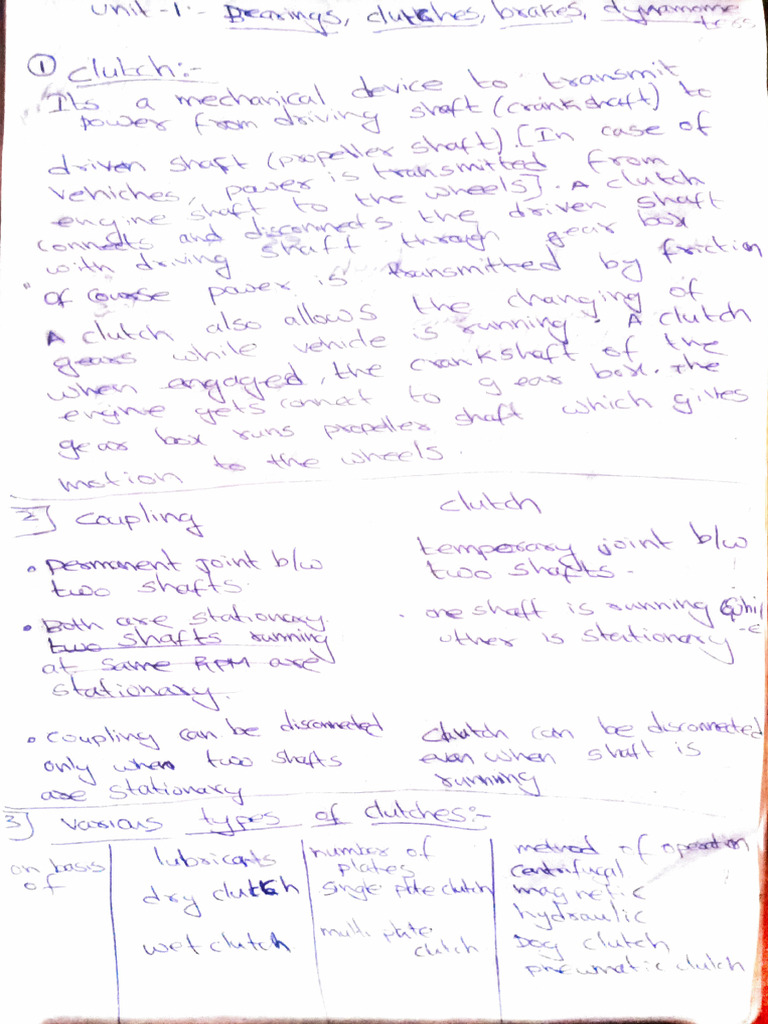 Unit-1:- Bearings, clutches, brakes, dynamome
-ters
① clutch:-
Its a mechanical device to transmit
power from driving shaft (crankshaft) to
driven shaft (propeller shaft). [In case of
vehicles, power is transmitted from
engine shaft to the wheels]. A clutch
connects and disconnects the driven shaft
with driving shaft through gear box
of course power is transmitted by friction
A clutch also allows the changing of
gears while vehicle is running. A clutch
when engaged, the crankshaft of the
engine gets connect to gear box. The
gear box runs propeller shaft which gives
motion to the wheels.
2] Coupling clutch
• permanent joint b/w temporary joint b/w
two shafts. two shafts.
• Both are stationary. - one shaft is running whil
two shafts running -e
other is stationary
at same RPM are
stationary.
• coupling can be disconnected clutch can be disconnected
only when two shafts even when shaft is
are stationary running
3] various types of clutches:-
on basis lubricants number of method of operation
of plates centrifugal
dry clutch single plate clutch magnetic
hydraulic
wet clutch multi plate Dog clutch
clutch pneumatic clutch